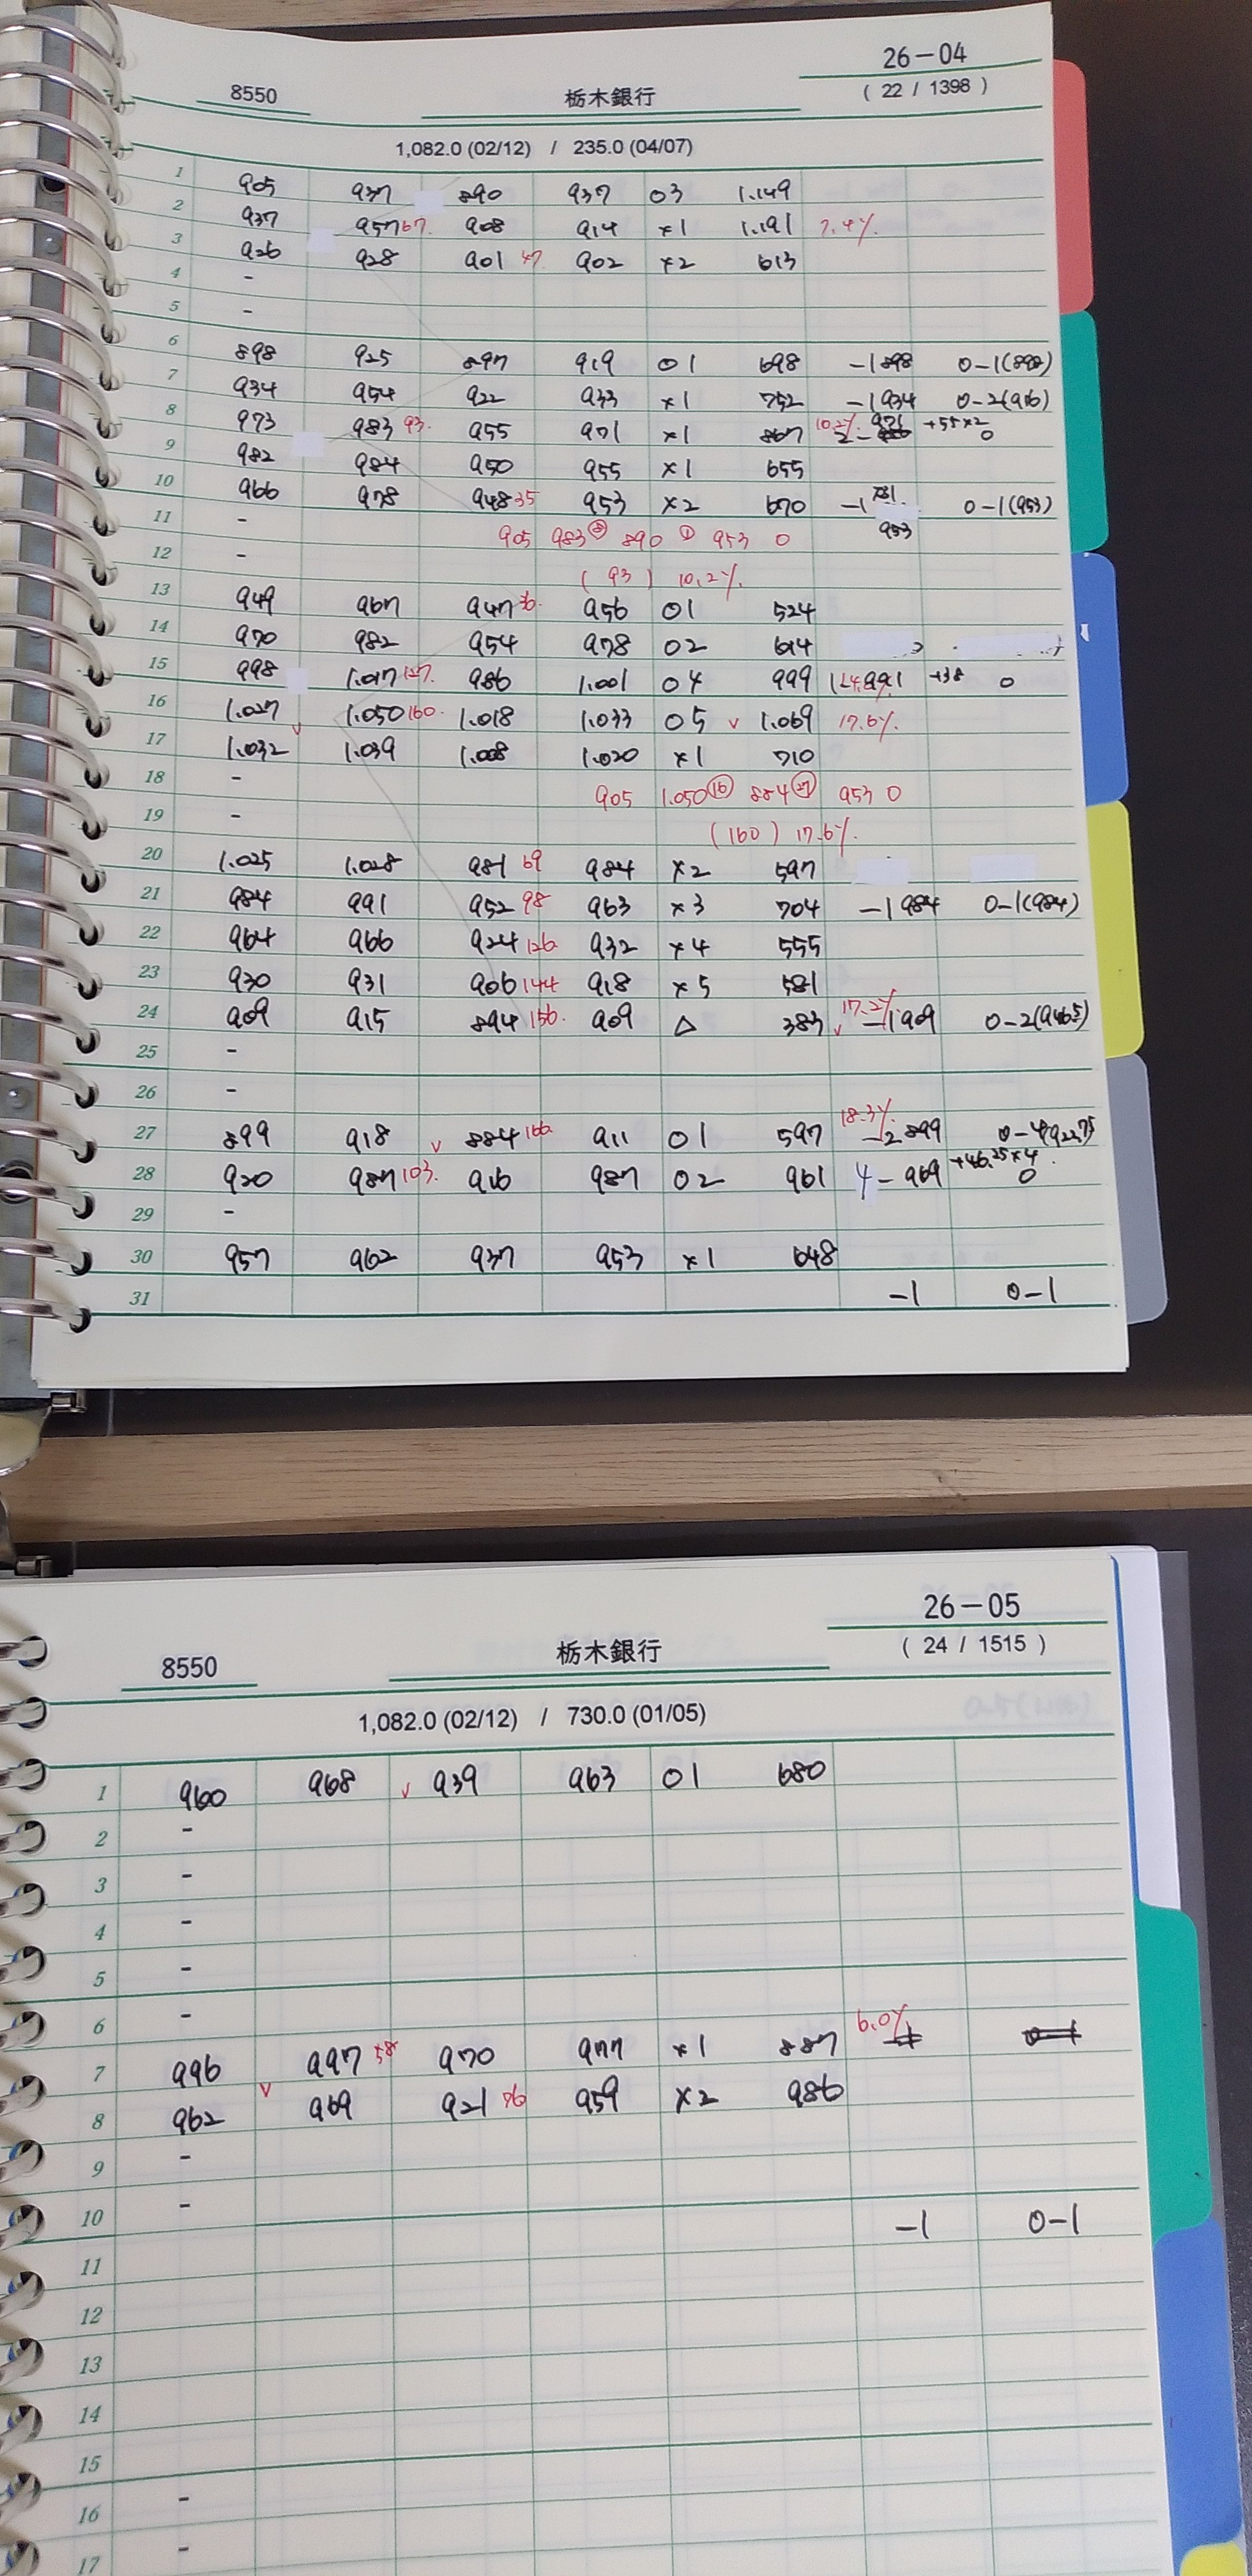 26-04
8550 栃木銀行 ( 22 / 1398 )
1,082.0 (02/12) / 235.0 (04/07)
1 905 937 890 937 03 1.149
2 937 957 67. 908 914 ×1 1.191 7.4%.
3 926 928 901 47 902 ×2 613
4 -
5 -
6 898 925 897 919 01 698 -1898 0-1(898)
7 934 954 922 933 ×1 752 -1934 0-2(916)
8 973 983 93. 955 971 ×1 867 10.2% 2-971 +55×2 0
9 982 984 950 955 ×1 655
10 966 978 948 35 953 ×2 670 -1 953 0-1(953)
11 - 905 983 890 953 0
12 - (93) 10.2%.
13 949 967 947 36. 956 01 524
14 970 982 954 978 02 614
15 998 1.017 127. 986 1.001 04 999 +38 0
16 1.027 1.050 160. 1.018 1.033 05 v 1.069 17.6%.
17 1.032 v 1.039 1.008 1.020 ×1 710
18 - 905 1.050 (16) 884 (27) 953 0
19 - (160) 17.6%.
20 1.025 1.028 981 69 984 ×2 597
21 984 991 952 98 963 ×3 704 -1984 0-1(984)
22 964 966 924 126 932 ×4 555
23 930 931 906 144 918 ×5 581
24 909 915 894 156. 909 △ 383 v 17.2% -1909 0-2(9465)
25 -
26 -
27 899 918 v 884 166. 911 01 597 18.3% -2899 0-4(922.75
28 920 987 103. 916 987 02 961 4-969 +46.25×4 0
29 -
30 957 962 937 953 ×1 648
31 -1 0-1
26-05
8550 栃木銀行 ( 24 / 1515 )
1,082.0 (02/12) / 730.0 (01/05)
1 960 968 v 939 963 01 680
2 -
3 -
4 -
5 -
6 -
7 996 997 58 970 977 ×1 887 6.0%
8 962 v 969 921 76 959 ×2 986
9 -
10 - -1 0-1
11
12
13
14
15
16 -
17 -